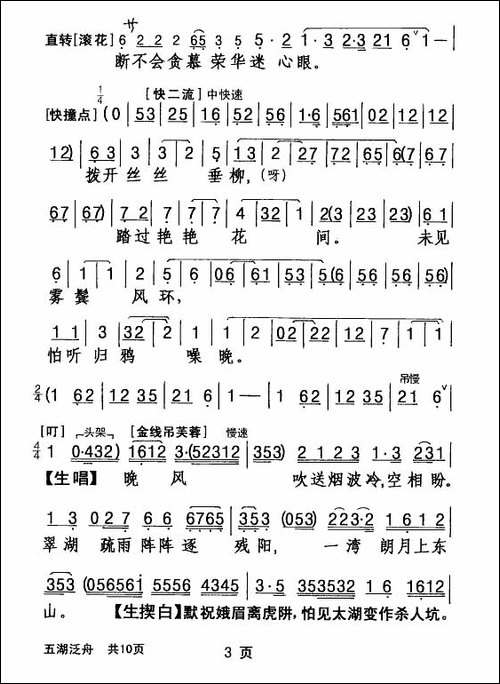 直转[滚花] サ 6 2 2 2 65 3 5 5·2 1·3 2·3 21 6 ˅ 1 —
断不会贪慕 荣华迷 心眼。
1/4 [快二流] 中快速
[快撞点] (0 | 53 | 25 | 16 | 52 | 56 | 1·6 | 561 | 02 | 12 | 12 |
12) | 6 3 | 6 2 | 6 2 | 5 | 13 | 2 | 27 | 72 | 65 | 6(7 | 67 |
拨开丝丝 垂柳,(呀)
67 | 67) | 7 2 | 7 7 | 4 | 32 | 1 | 2(3 | 23 | 23) | 6 1 |
踏过艳艳 花 间。 未见
6 | 1 1 | 2 | 5 | 06 | 61 | 53 | 5(6 | 56 | 56 | 56) |
雾鬓 风环,
1 1 | 1 3 | 32 | 2 | 2 | 02 | 22 | 12 | 7 | 1 | 1 |
怕听归鸦 噪晚。
2/4 (1 62 | 12 35 | 21 6 | 1 — | 1 62 | 12 35 | 吊慢 21 6 ˅ |
[叮] 头架 [金线吊芙蓉] 慢速
4/4 1 0·432) 1612 3·(52312 | 353) 2 123 1·3 231 |
【生唱】 晚 风 吹送烟波冷,空相盼。
1 3 027 6 6 6765 | 353 (053) 223·2 1612 |
翠湖 疏雨阵阵逐 残阳, 一湾 朗月上东
353 (056561 5556 4345 | 3532 1 3 2 1 6 1612 |
山。 【生揳白】默祝娥眉离虎阱,怕见太湖变作杀人坑。
五湖泛舟 共10页 3 页